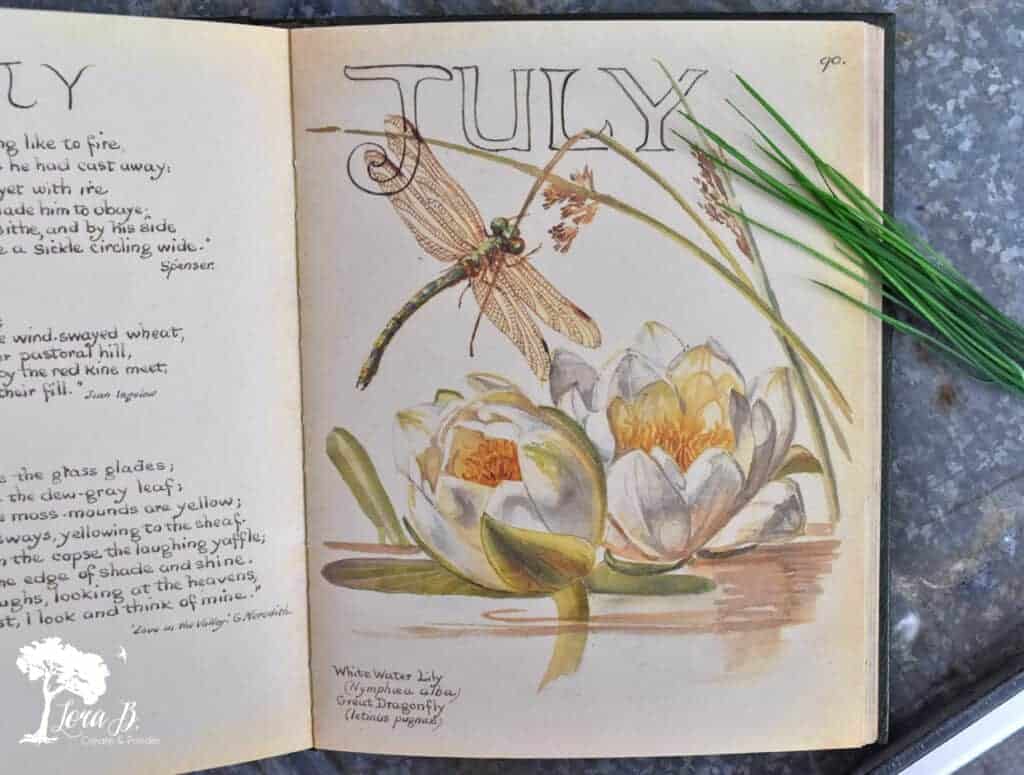 LY
ng like to fire,
s he had cast away:
yet with ire
made him to obaye;
sithe, and by his side
e a Sickle circling wide."
Spenser.
e wind-swayed wheat,
or pastoral hill,
by the red kine meet,
their fill." Jean Ingelow
s the grass glades;
the dew-gray leaf;
e moss-mounds are yellow;
sways, yellowing to the sheaf.
n the copse the laughing yaffle;
he edge of shade and shine.
ughs, looking at the heavens,
st, I look and think of mine."
'Love in the Valley.' G. Meredith.
Lora B.
Create & Ponder
90.
JULY
White Water Lily
(Nymphœa alba)
Great Dragonfly
(Ictinus pugnax)